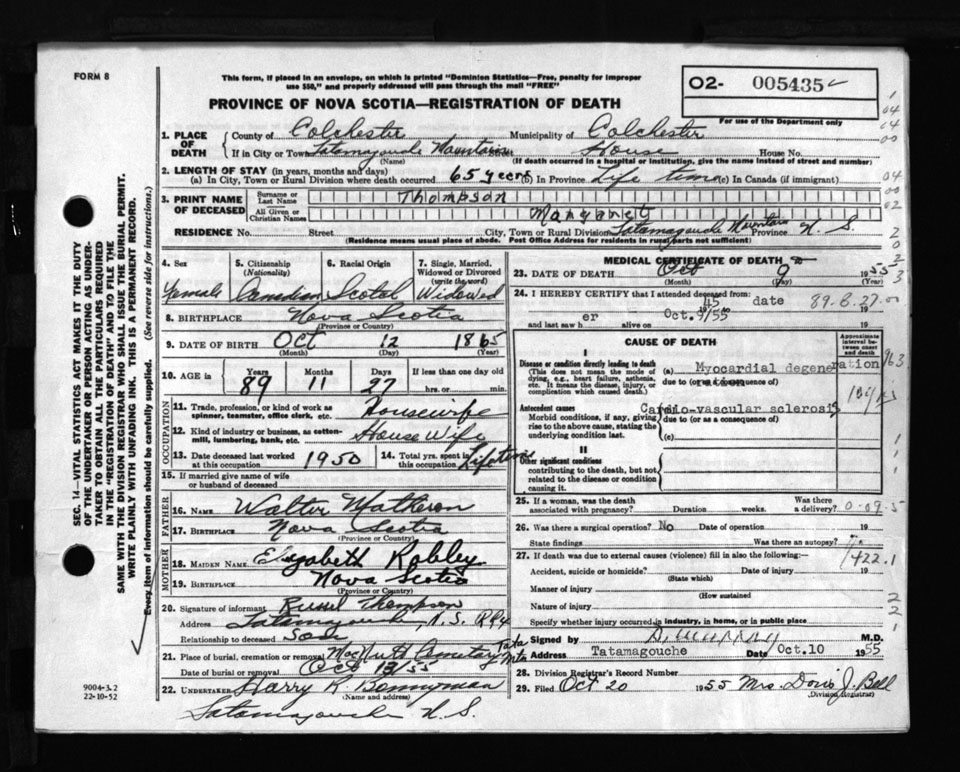 FORM 8
This form, if placed in an envelope, on which is printed "Dominion Statistics—Free, penalty for improper
use $50," and properly addressed will pass through the mail "FREE"
PROVINCE OF NOVA SCOTIA—REGISTRATION OF DEATH
O2- 005435
For use of the Department only
1. PLACE OF DEATH County of Colchester Municipality of Colchester
If in City or Town Tatamagouche Mountain House House No.
(Name) (If death occurred in a hospital or institution, give the name instead of street and number)
2. LENGTH OF STAY (in years, months and days)
(a) In City, Town or Rural Division where death occurred 65 years (b) In Province Life time (c) In Canada (if immigrant)
3. PRINT NAME OF DECEASED Surname or Last Name Thompson
All Given or Christian Names Margaret
RESIDENCE No. Street City, Town or Rural Division Tatamagouche Mountain Province N. S.
(Residence means usual place of abode. Post Office Address for residents in rural parts not sufficient)
4. Sex 5. Citizenship (Nationality) 6. Racial Origin 7. Single, Married, Widowed or Divorced (write the word)
Female Canadian Scotch Widowed
8. BIRTHPLACE Nova Scotia
(Province or Country)
9. DATE OF BIRTH Oct 12 1865
(Month) (Day) (Year)
10. AGE in Years Months Days If less than one day old
89 11 27 hrs. or min.
OCCUPATION
11. Trade, profession, or kind of work as spinner, teamster, office clerk, etc. Housewife
12. Kind of industry or business, as cotton-mill, lumbering, bank, etc. House Wife
13. Date deceased last worked at this occupation 1950 14. Total yrs. spent in this occupation Lifetime
15. If married give name of wife or husband of deceased
FATHER
16. NAME Walter Matheson
17. BIRTHPLACE Nova Scotia
(Province or Country)
MOTHER
18. MAIDEN NAME Elizabeth Robley
19. BIRTHPLACE Nova Scotia
(Province or Country)
20. Signature of informant Russel Thompson
Address Tatamagouche, N. S. RR4
Relationship to deceased Son
21. Place of burial, cremation or removal McNutt Cemetery Tata Mtn
Date of burial or removal Oct 13/55
22. UNDERTAKER Harry R. Bonnyman
(Name and address)
Tatamagouche N. S.
MEDICAL CERTIFICATE OF DEATH
23. DATE OF DEATH Oct 9 1955
(Month) (Day)
24. I HEREBY CERTIFY that I attended deceased from:
45 date 89.8.27.00
19 19
and last saw her alive on Oct.9/55 19
CAUSE OF DEATH
Approximate interval between onset and death
I
Disease or condition directly leading to death
(This does not mean the mode of dying, e.g., heart failure, asthenia, etc. It means the disease, injury, or complication which caused death.)
(a) Myocardial degeneration
due to (or as a consequence of)
Antecedent causes
Morbid conditions, if any, giving rise to the above cause, stating the underlying condition last.
Cardio-vascular sclerosis
due to (or as a consequence of)
(c)
II
Other significant conditions
contributing to the death, but not related to the disease or condition causing it.
25. If a woman, was the death associated with pregnancy? Duration weeks. Was there a delivery? 0-09-5
26. Was there a surgical operation? No Date of operation 19
State findings Was there an autopsy?
27. If death was due to external causes (violence) fill in also the following:—
422.1
Accident, suicide or homicide? Date of injury 19
(State which)
Manner of injury
(How sustained
Nature of injury
Specify whether injury occurred in industry, in home, or in public place
Signed by D. Murray M.D.
Address Tatamagouche Date Oct.10 1955
28. Division Registrar's Record Number
29. Filed Oct 20 1955 Mrs. Doris J. Bell
(Division Registrar)
SEC. 14—VITAL STATISTICS ACT MAKES IT THE DUTY
OF THE UNDERTAKER OR PERSON ACTING AS UNDER-
TAKER TO OBTAIN ALL THE PARTICULARS REQUIRED
IN THE "REGISTRATION OF DEATH" AND TO FILE THE
SAME WITH THE DIVISION REGISTRAR WHO SHALL ISSUE THE BURIAL PERMIT.
WRITE PLAINLY WITH UNFADING INK. THIS IS A PERMANENT RECORD.
Every item of information should be carefully supplied. (See reverse side for instructions.)
9004-3.2
22-10-52